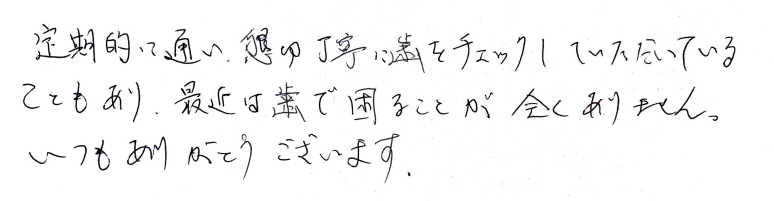 定期的に通い、懇切丁寧に歯をチェックしていただいている
こともあり、最近は歯で困ることが全くありません。
いつもありがとうございます。